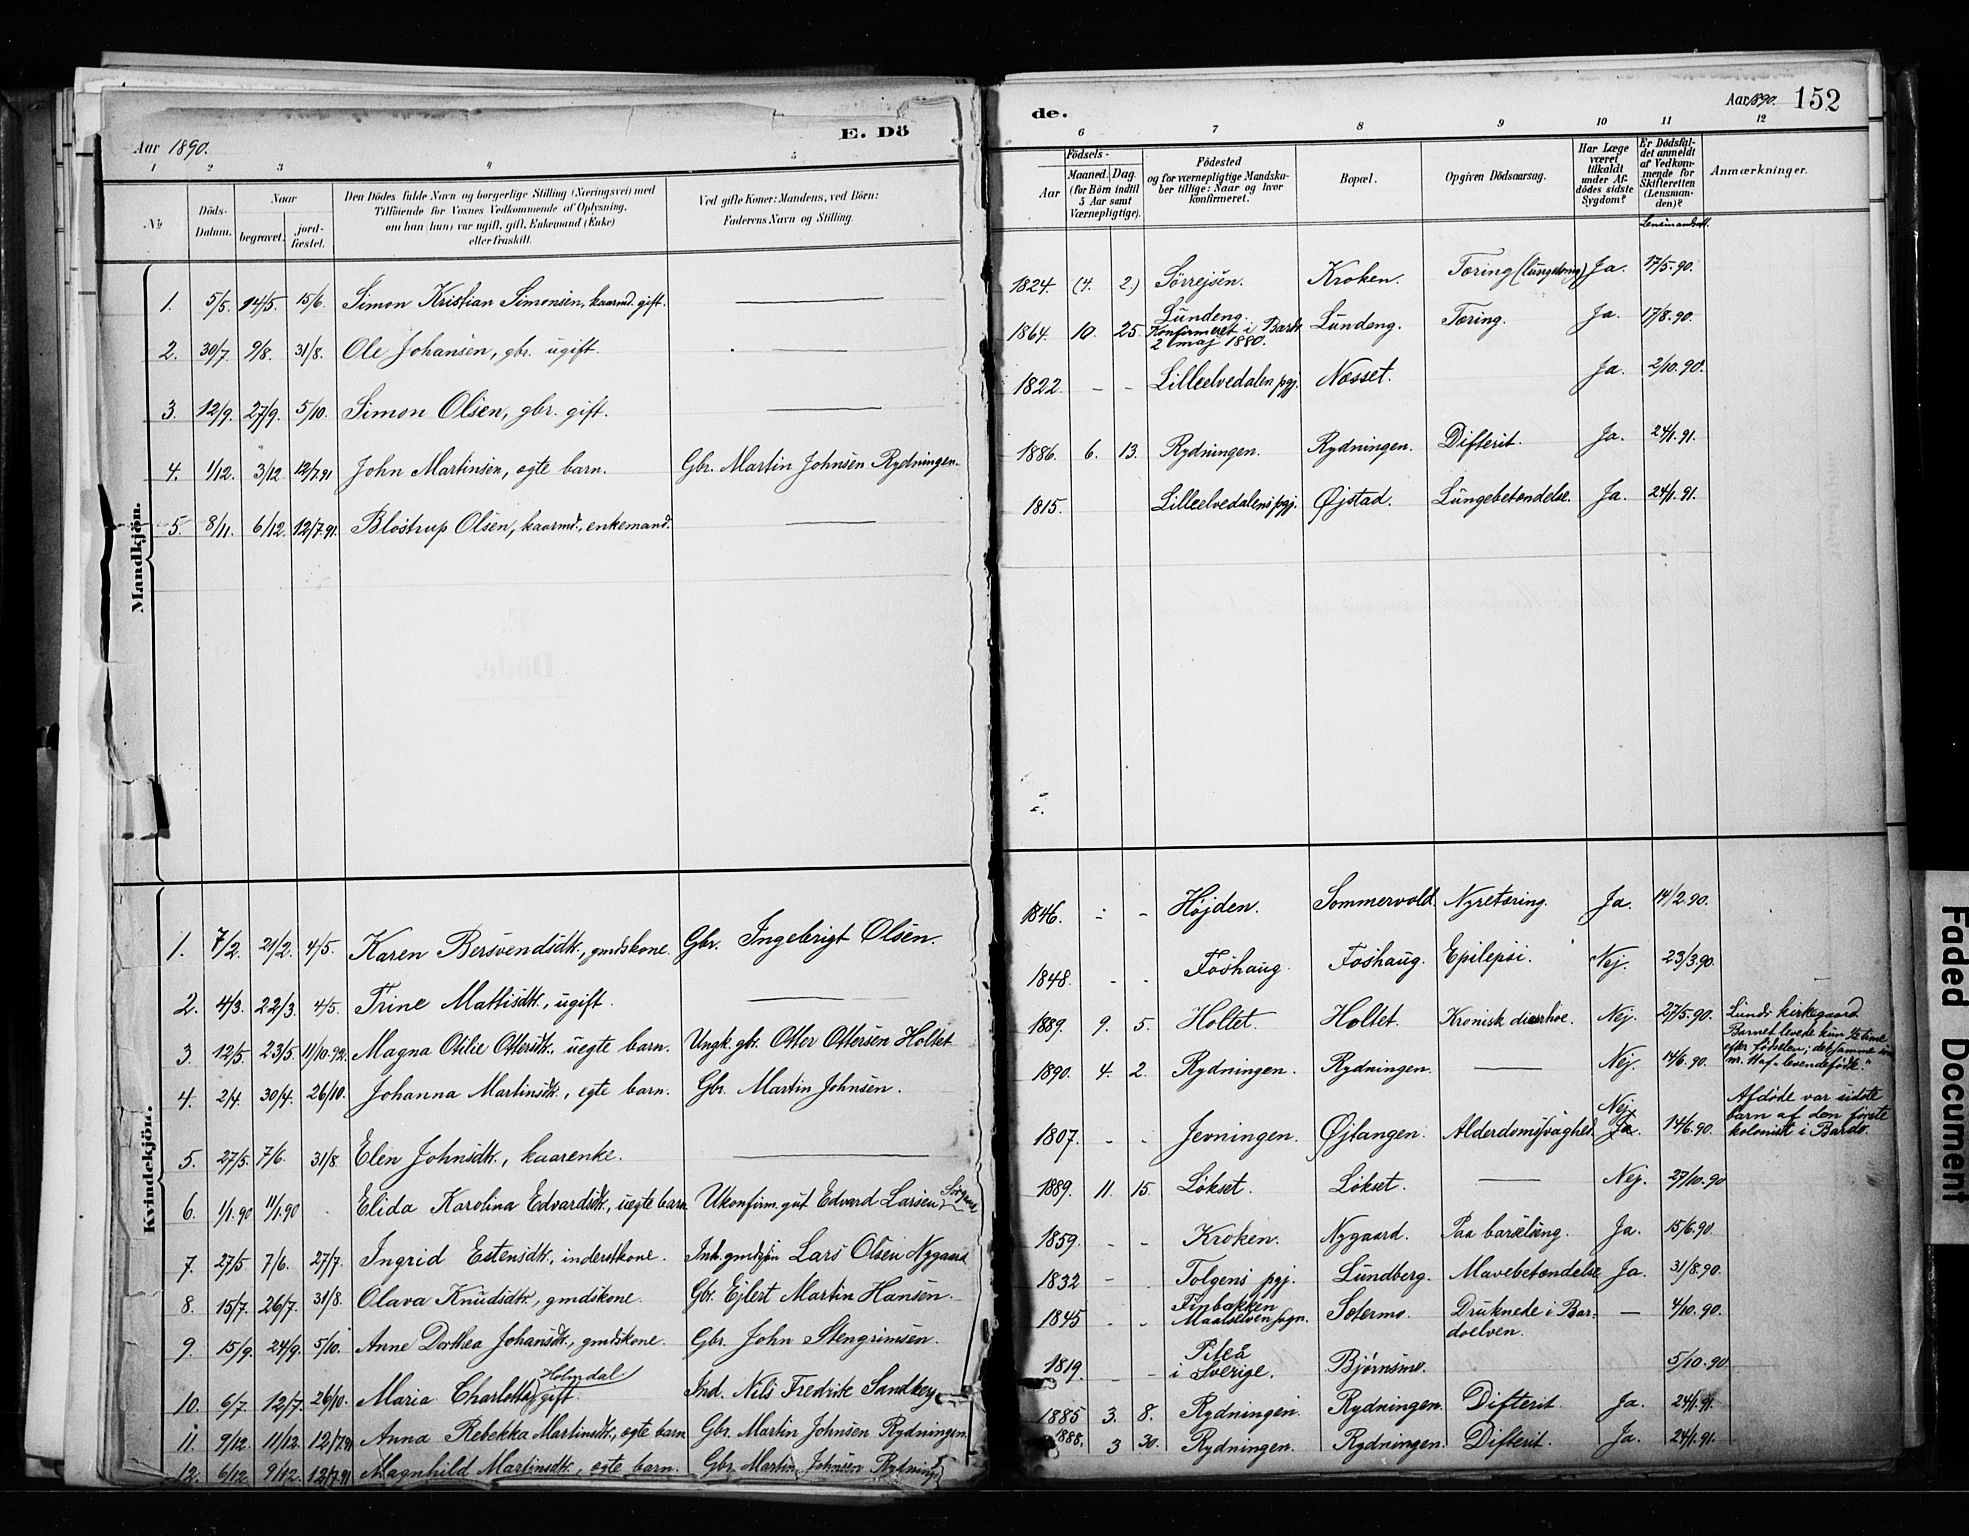 E. Dö
Aar 1890.
1 2 3 4 5
No
Döds-Datum.
Naar
begravet.
jord-fæstet.
Den Dödes fulde Navn og borgerlige Stilling (Næringsvei) med
Tilföiende for Voxnes Vedkommende af Oplysning,
om han (hun) var ugift, gift, Enkemand (Enke)
eller fraskilt.
Ved gifte Koner: Mandens, ved Börn:
Faderens Navn og Stilling.
Mandkjön.
1. 5/5. 14/5. 15/6. Simon Kristian Simonsen, kaarmd. gift.
2. 30/7. 9/8. 31/8. Ole Johansen, gbr. ugift.
3. 12/9. 27/9. 5/10. Simon Olsen, gbr. gift.
4. 1/12. 3/12 12/7.91 John Martinsen, ægte barn. Gbr. Martin Johnsen Rydningen.
5. 8/11. 6/12. 12/7.91. Blostrup Olsen, kaarmd., enkemand.
Kvindekjön.
1. 7/2. 21/2. 4/5. Karen Bersvendsdtr., gmdskone. Gbr. Ingebrigt Olsen.
2. 4/3. 22/3. 4/5. Trine Mattisdtr., ugift.
3. 12/5. 23/5. 11/10.92. Magna Otilie Ottersdtr., uegte barn. Ungk. gbr. Otter Ottersen Holtet
4. 2/4. 30/4. 26/10. Johanna Martinsdtr., egte barn. Gbr. Martin Johnsen.
5. 27/5. 7/6. 31/8. Elen Johnsdtr., kaarenke.
6. 1/1.90 11/1.90 Elida Karolina Edvardsdtr., uegte barn. Ukonfirm. gut Edvard Larsen
7. 27/5 7/6. 27/7. Ingrid Estensdtr., inderstkone. Inh. gmdsøn Lars Olsen Nygaard
8. 15/7. 26/7. 31/8. Olava Knudsdtr., gmdskone. Gbr. Ejlert Martin Hansen.
9. 15/9. 24/9. 5/10. Anne Dorthea Johansdtr., gmdskone. Gbr. John Stengrimsen.
Holmdal.
10. 6/7. 12/7. 26/10. Maria Charlotta, gift. Ind. Nils Fredrik Sandberg
11. 9/12. 11/12. 12/7.91 Anna Rebekka Martinsdtr., ægte barn Gbr. Martin Johnsen Rydningen.
12. 6/12 9/12. 12/7.91 Magnhild Martinsdtr., egte barn. Gbr. Martin Johnsen Rydningen
de.
Aar 1890. 152
6 7 8 9 10 11 12
Födsels-
Aar
Maaned. Dag.
(for Börn indtil
5 Aar samt
Værnepligtige).
Födested
og for værnepligtige Mandska-
ber tillige: Naar og hvor
konfirmeret.
Bopæl.
Opgiven Dödsaarsag.
Har Læge
været
tilkaldt
under Af-
dödes sidste
Sygdom?
Er Dödsfal-
det anmeldt
af Vedkom-
mende for
Skifteretten
(Lensman-
den)?
Anmærkninger.
1824. (4. 2.) Sörrejsen. Kroken. Tæring (lungetæring) Ja. 17/5.90.
Lundeng.
1864. 10. 25. Konfirmeret i Bardo Lundeng. Tæring. Ja. 17/8.90.
2 maj 1880.
1822. - - Lilleelvedalen pgj. Næsset. Ja. 2/10.90.
1886. 6. 13. Rydningen. Rydningen. Difterit. Ja. 24/1.91.
1815. Lilleelvedalens pgj. Øjstad. Lungebetændelse. Ja. 24/1.91.
1846. - - Højden. Sommervold. Nyretæring. Ja. 14/2.90.
1848. - - Foshaug. Foshaug. Epilepsi. Nej. 23/3.90.
1889. 9. 5. Holtet. Holtet. Kronisk diarrhoe. Nej. 27/5.90. Lunds kirkegaard
1890. 4. 2. Rydningen. Rydningen. Nej. 14/6.90. Barnet levede kun ½ time
efter fødselen; det samme som
nr. 11 af „levendefødte."
1807. - - Jevningen. Øjtangen. Alderdomssvaghed. Nej. Ja. 14/6.90. Afdøde var sidste
barn af den første
kolonist i Bardo.
1889. 11. 15. Løkset. Løkset. Nej. 27/10.90
1859. - - Kroken. Nygaard. Paa barselseng. Ja. 15/6.90.
1832 - - Tolgens pgj. Lundberg. Mavebetændelse Ja. 31/8.90.
1845 - - Finbakken Maalselven sogn. Sætermo. Druknede i Bar- — 4/10.90.
doelven.
1819. - - Piteå i Sverige. Bjørnsmo. 5/10.90.
1885 3. 8. Rydningen. Rydningen. Difterit. Ja. 24/1.91.
1888. 3 30. Rydningen. Rydningen. Difterit. Ja. 24/1.91.
Faded Document